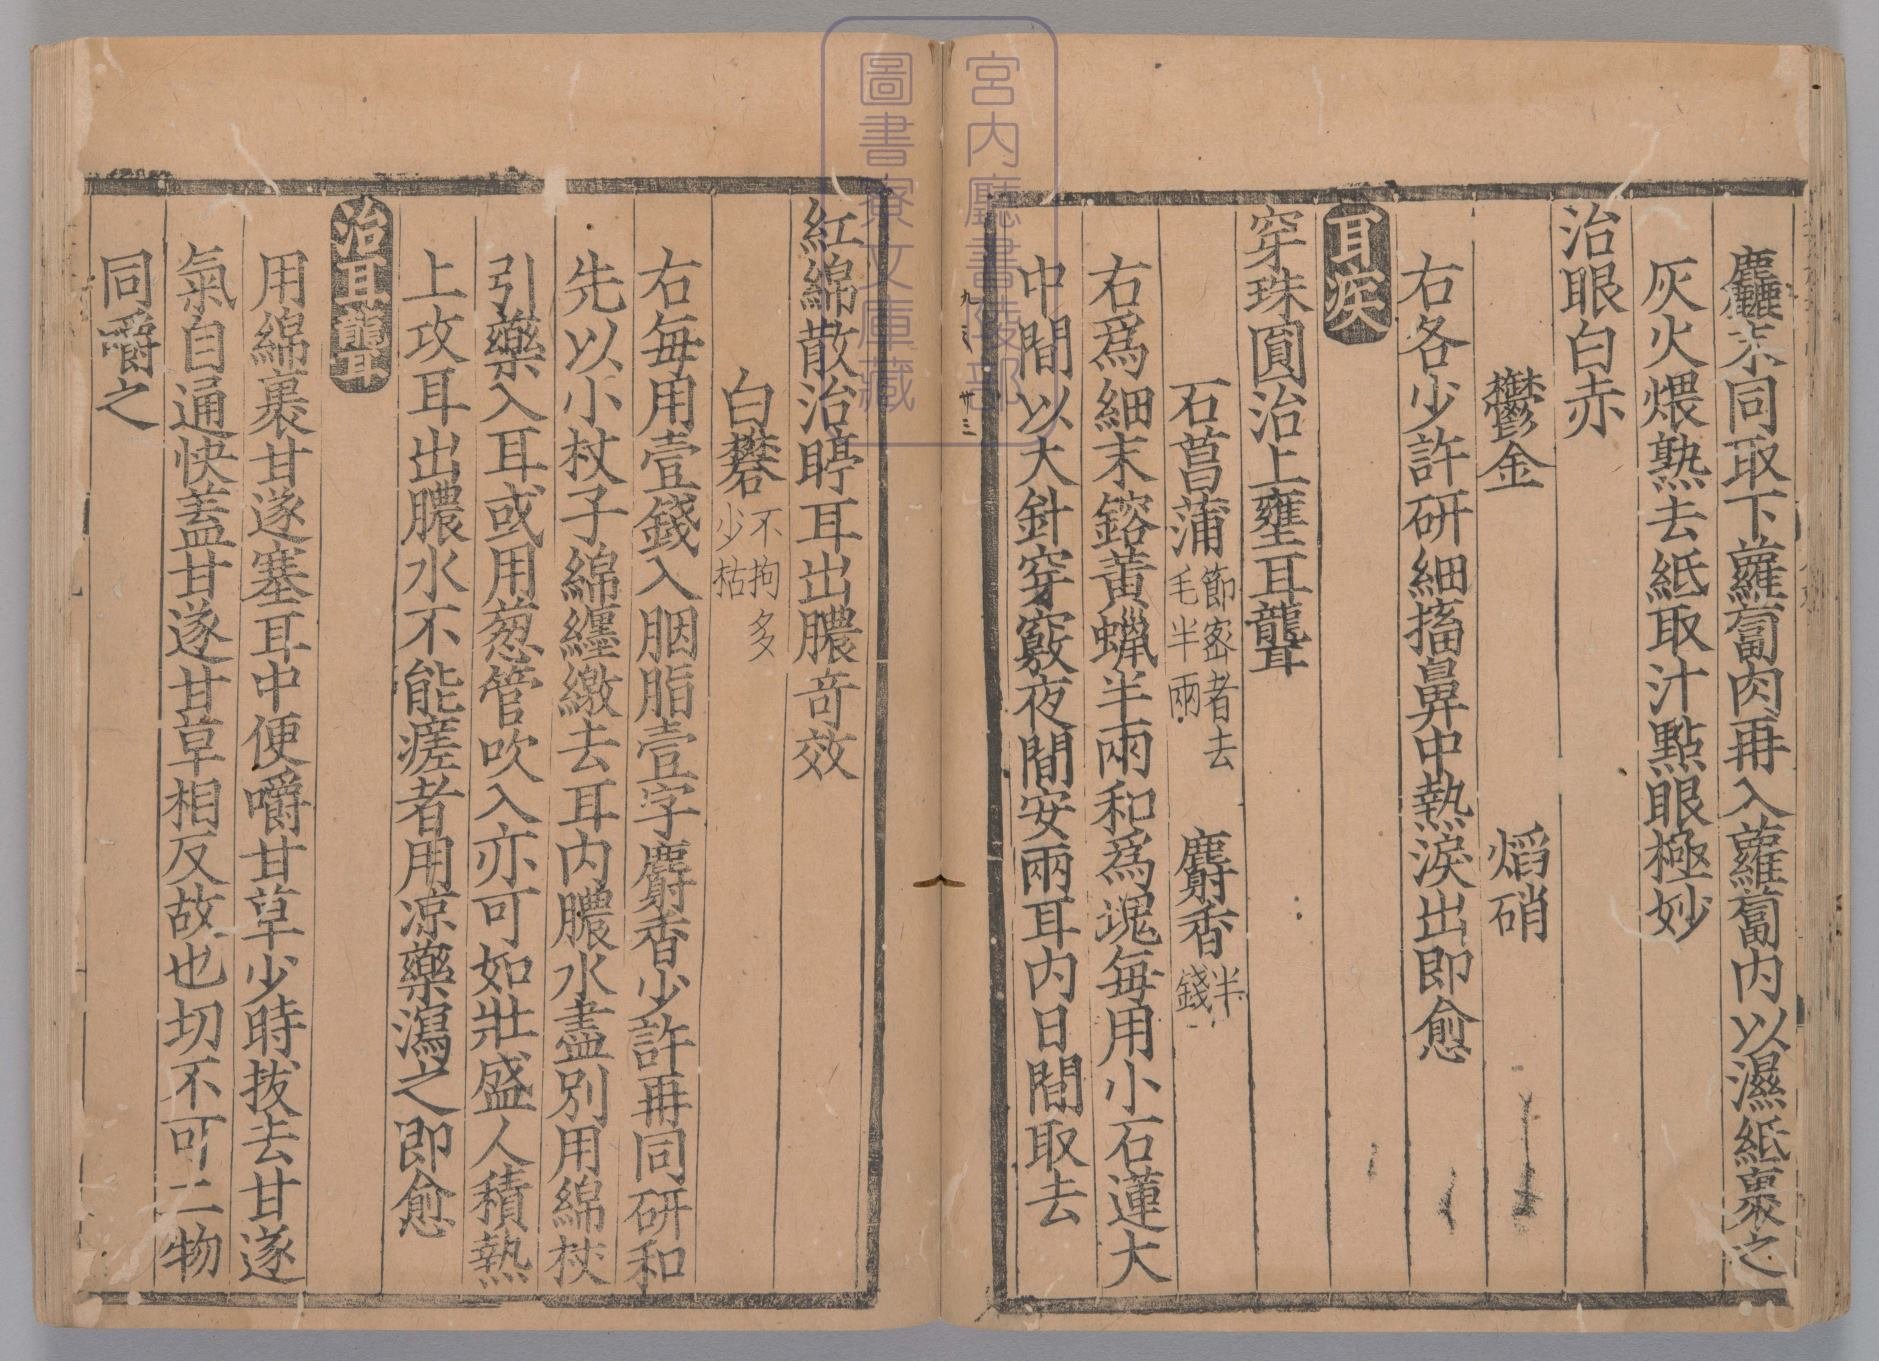 麤末同取下蘿蔔肉再入蘿蔔内以濕紙裹之
灰火煨熟去紙取汁點眼極妙
治眼白赤
鬱金　焰硝
右各少許研細搐鼻中熱淚出即愈
耳疾
穿珠圓治上壅耳聾
石菖蒲 節密者去毛半兩　麝香 半錢
右爲細末鎔黃蠟半兩和爲塊每用小石蓮大
中間以大針穿竅夜間安兩耳内日間取去
紅綿散治聤耳出膿奇效
白礬 不拘多少枯
右每用壹錢入胭脂壹字麝香少許再同研和
先以小杖子綿纏繳去耳内膿水盡別用綿杖
引藥入耳或用葱管吹入亦可如壯盛人積熱
上攻耳出膿水不能瘥者用凉藥瀉之即愈
治耳聾
用綿裹甘遂塞耳中便嚼甘草少時拔去甘遂
氣自通快蓋甘遂甘草相反故也切不可二物
同嚼之
宮内廳書陵部
圖書寮文庫藏